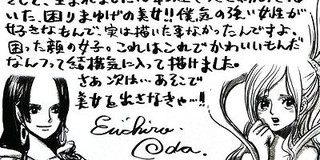 いた、困りまゆげの美女!!僕、気の強い女性が
好きなもんで、実は描いた事なかったんですよ。
困った顔の女子。これはこれでかわいいもんだ
なんつって結構気に入って描けました。
さぁ次は…あそこで
美女を出さなきゃ…!!
Eiichiro
Oda.